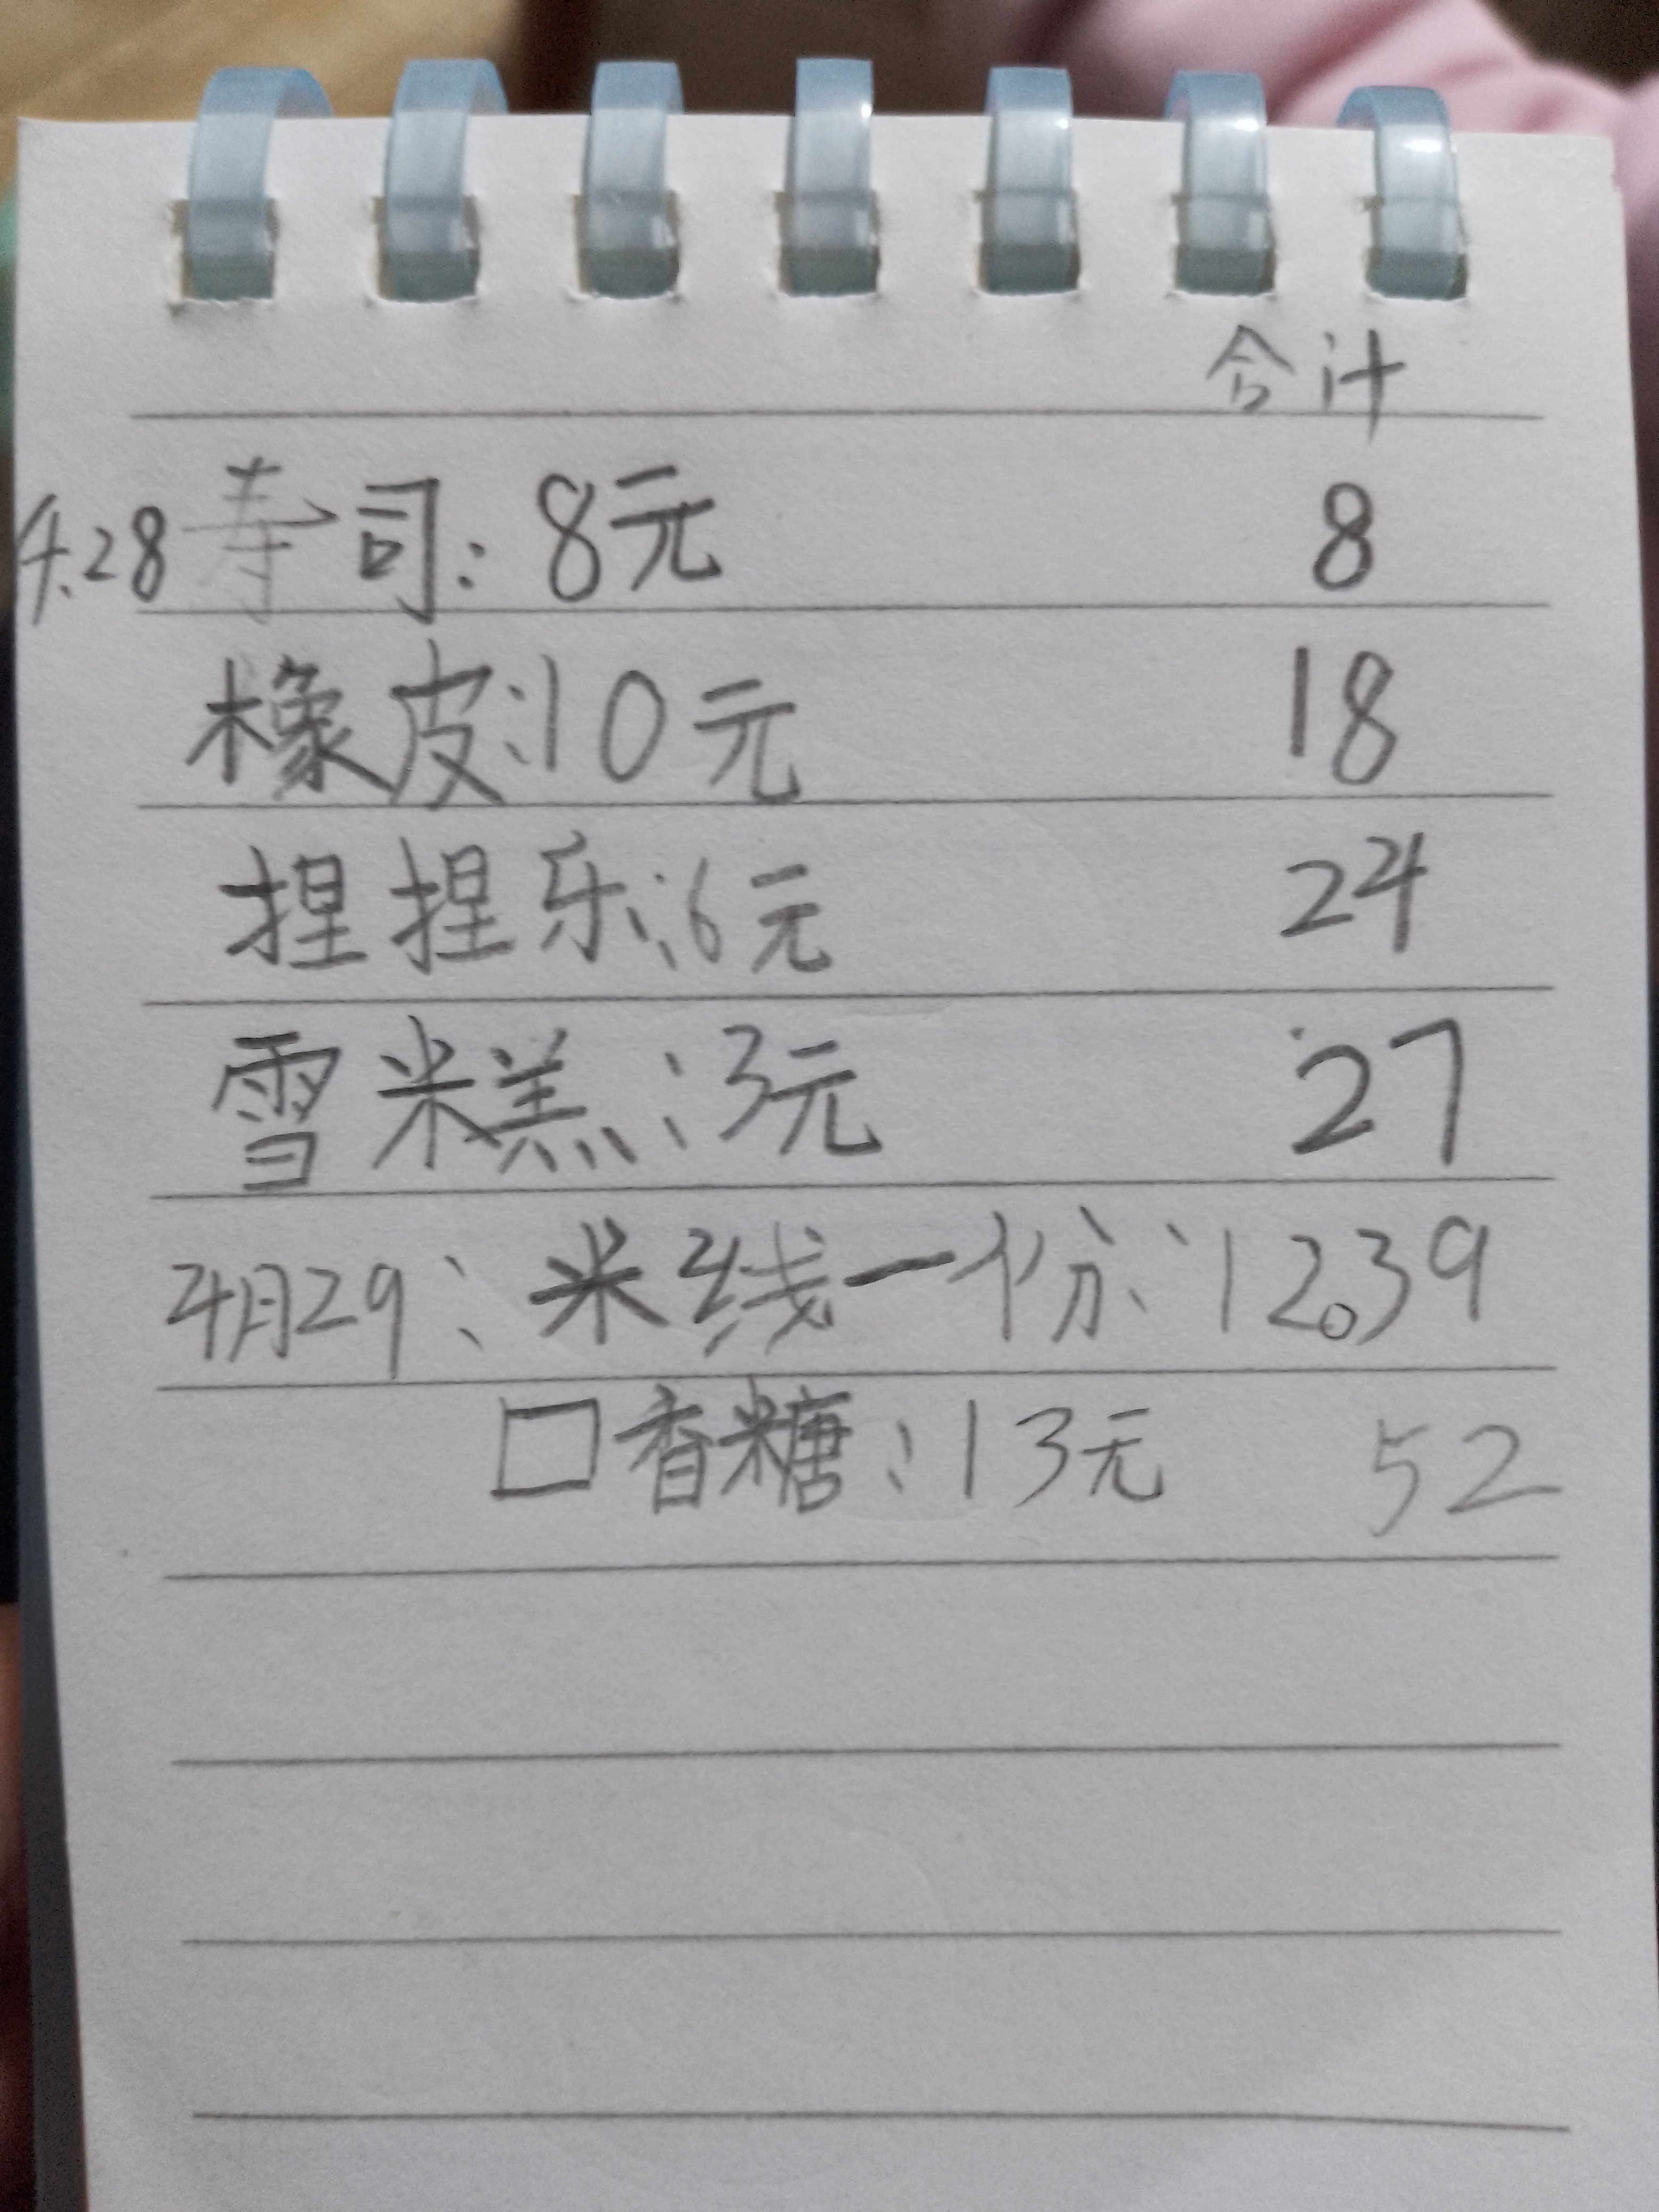 合计
4.28 寿司：8元 8
橡皮：10元 18
捏捏乐：6元 24
雪米糕：3元 27
4月29：米线一份：12。39
口香糖：13元 52